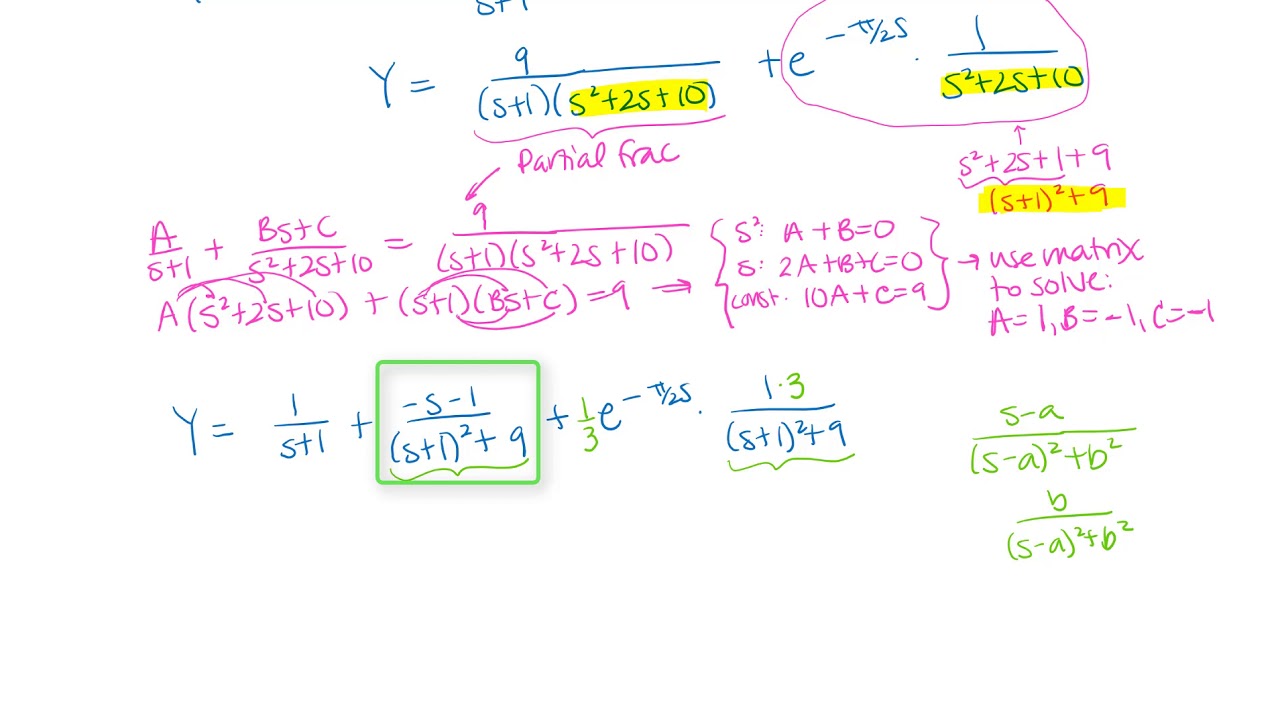 s+1
Y = 9/((s+1)(s²+2s+10)) + e^(-π/2 s) · 1/(s²+2s+10)
Partial frac
s²+2s+1+9
(s+1)²+9
A/(s+1) + (Bs+C)/(s²+2s+10) = 9/((s+1)(s²+2s+10))
A(s²+2s+10) + (s+1)(Bs+C) = 9 →
s²: A+B=0
s: 2A+B+C=0
const. 10A+C=9
→ use matrix
to solve:
A=1, B=-1, C=-1
Y = 1/(s+1) + (-s-1)/((s+1)²+9) + 1/3 e^(-π/2 s) · (1·3)/((s+1)²+9)
(s-a)/((s-a)²+b²)
b/((s-a)²+b²)